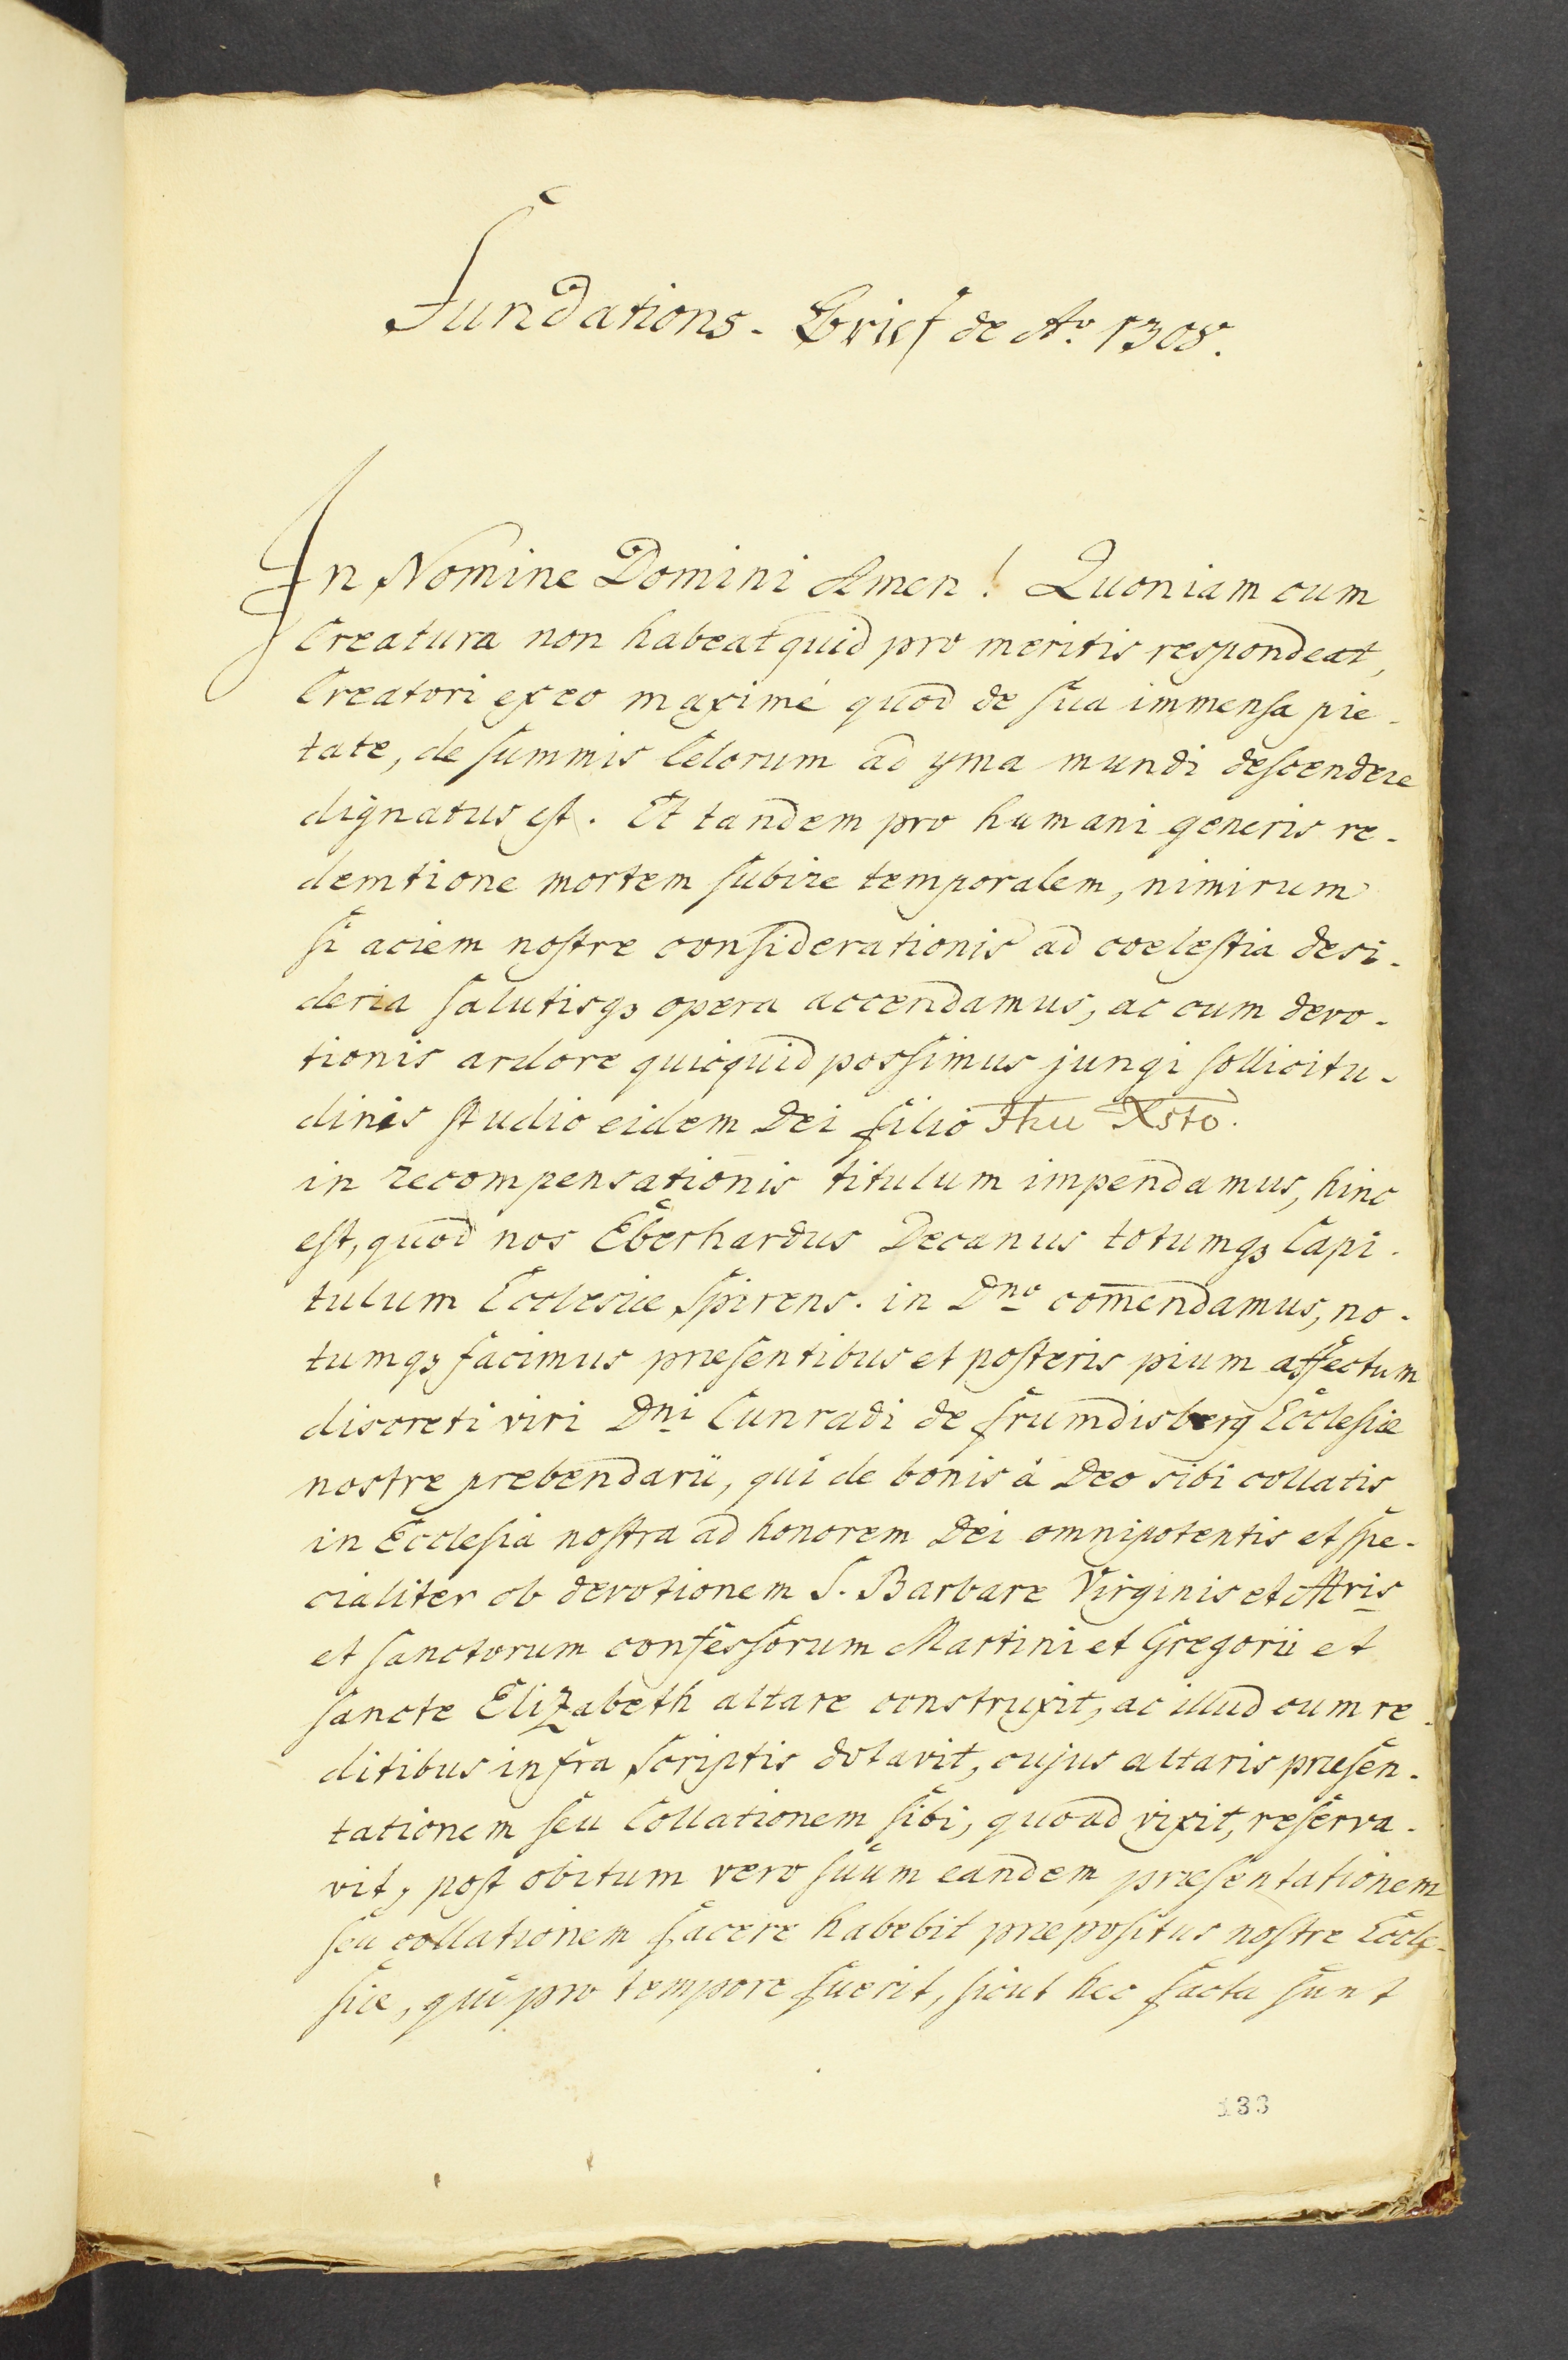 Fundations-Brief de Aº. 1308.
In Nomine Domini Amen! Quoniam cum
Creatura non habeat quid pro meritis respondeat,
Creatori ex eo maximé quod de sua immensa pie-
tate, de summis Celorum ad yma mundi descendere
dignatus est. Et tandem pro humani generis re-
demtione mortem subire temporalem, nimirum
si aciem nostre considerationis ad coelestia desi-
deria salutisqꝫ opera accendamus, ac cum devo-
tionis ardore quicquid possimus jungi sollicitu-
dinis studio eidem Dei filio Jhu Xsto.
in recompensationis titulum impendamus, hinc
est, quod nos Eberhardus Decanus totumqꝫ Capi-
tulum Ecclesiæ Spirens. in Dno comendamus, no-
tumqꝫ facimus præsentibus et posteris pium affectum
discreti viri Dni Cunradi de frumdisberg Ecclesiæ
nostre prebendarii, qui de bonis à Deo sibi collatis
in Ecclesia nostra ad honorem Dei omnipotentis et spe-
cialiter ob devotionem S. Barbare Virginis et Mris
et sanctorum confessorum Martini et Gregorii et
sancte Elizabeth altare construxit, ac illud cum re-
ditibus infra scriptis dotavit, cujus altaris præsen-
tationem seu Collationem sibi, quoad vixit, reserva-
vit, post obitum vero suum eandem præsentationem
seu collationem facere habebit præpositus nostre Eccle-
siæ, qui pro tempore fuerit, sicut hec facta sunt
133